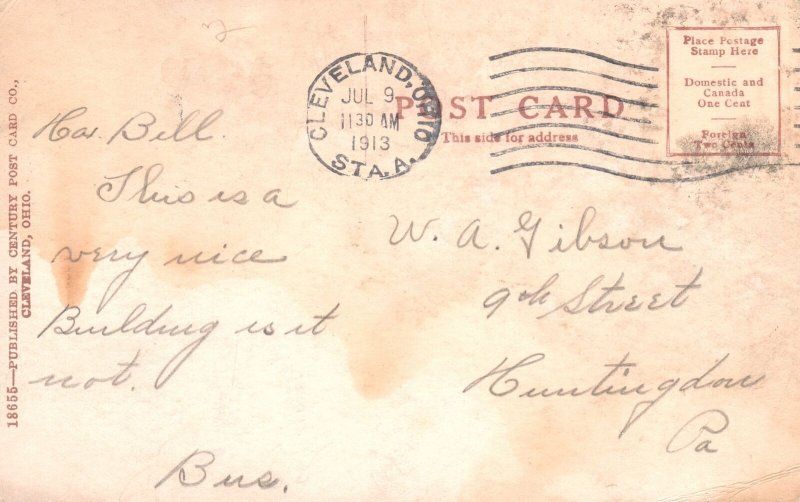 18655—PUBLISHED BY CENTURY POST CARD CO.,
CLEVELAND, OHIO.
CLEVELAND, OHIO
JUL 9
1130 AM
1913
STA. A.
POST CARD
This side for address
Place Postage
Stamp Here
Domestic and
Canada
One Cent
Foreign
Two Cents
Bill.
This is a
very nice
Building is it
not.
W. A. Gibson
9th Street
Huntingdon
Pa